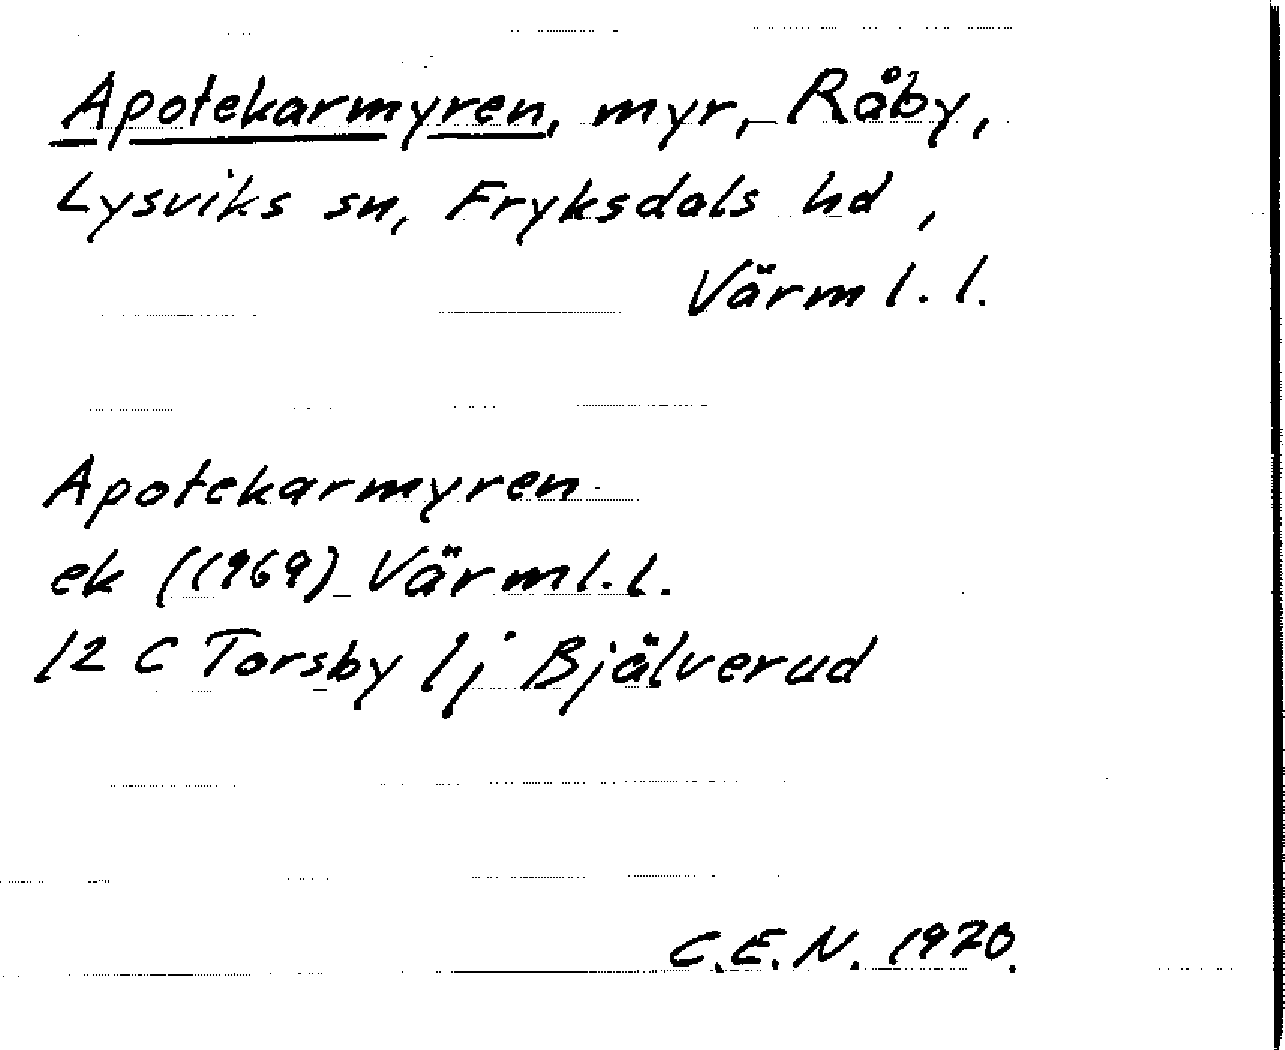 Apotekarmyren, myr, Råby,
Lysviks sn, Fryksdals hd,
Värml. l.
Apotekarmyren
ek (1969) Värml. l.
12 C Torsby 1j Bjälverud
C.E.N. 1970.